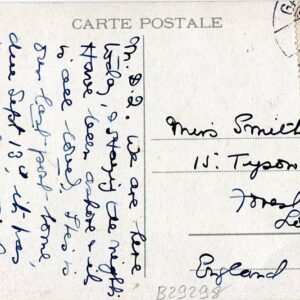 CARTE POSTALE
M. D.2. We are here
today, & stayg the night.
Have been ashore & it
is all lovely. This is
our last port – home,
due Sept 13th, it has
Miss Smith
15. Tyson
Forest
England
B29298